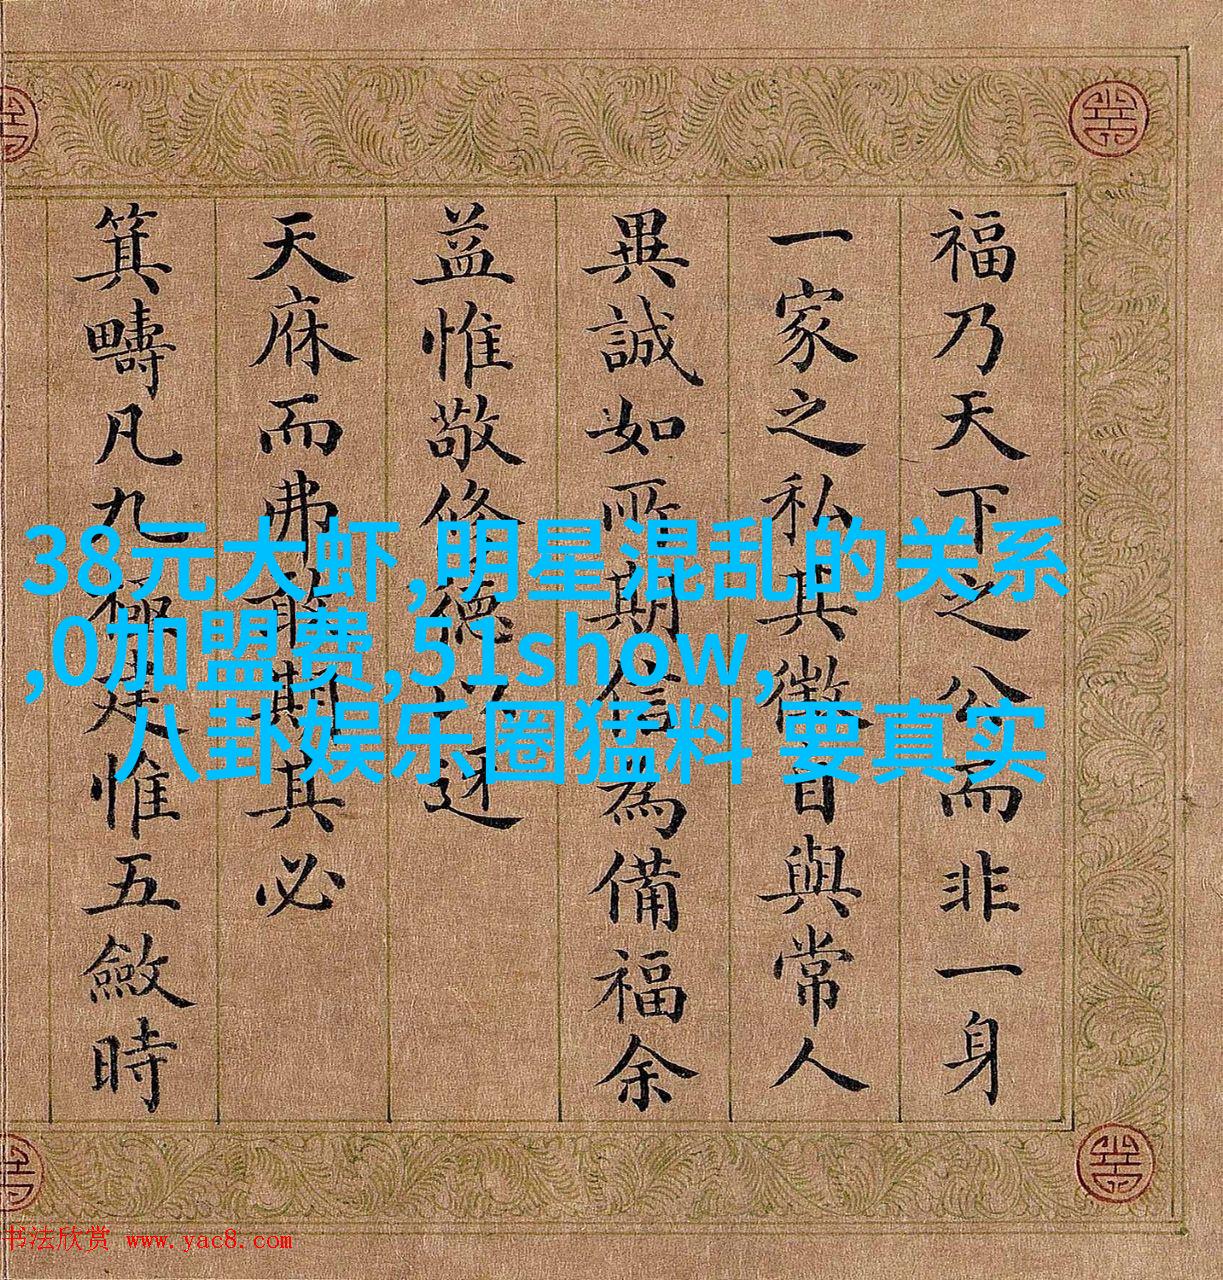 福乃天下之公而非一身
一家之私其徵自與常人
異誠如所期信為備福余
益惟敬修德以迓
天庥而弗敢期其必
箕疇凡九極建惟五斂時
38元大虾,明星混乱的关系
,0加盟费,51show,
八卦娱乐圈猛料 要真实
书法欣赏 www.yac8.com